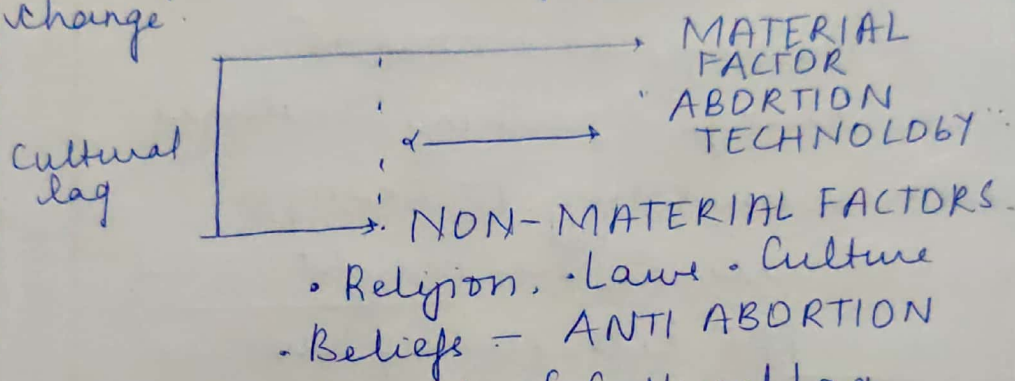 change.
MATERIAL
FACTOR
ABORTION
TECHNOLOGY
Cultural
lag
NON-MATERIAL FACTORS.
• Religion. • Laws • Culture
• Beliefs - ANTI ABORTION